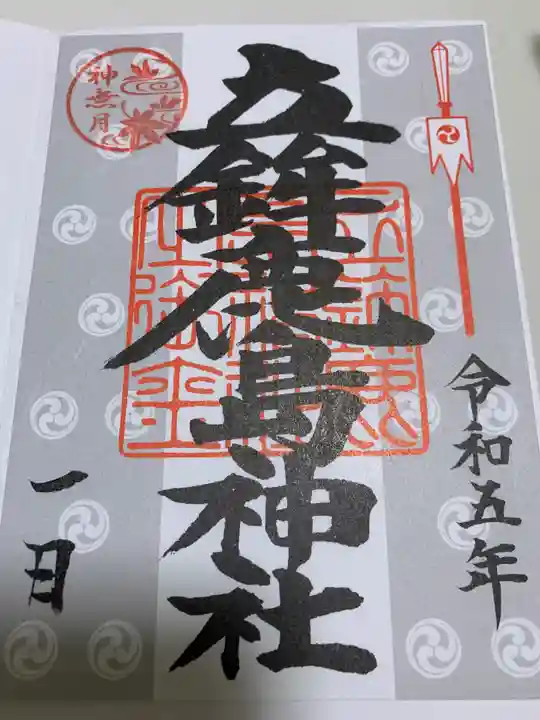 令和五年
立鉾鹿島神社
神無月
一日